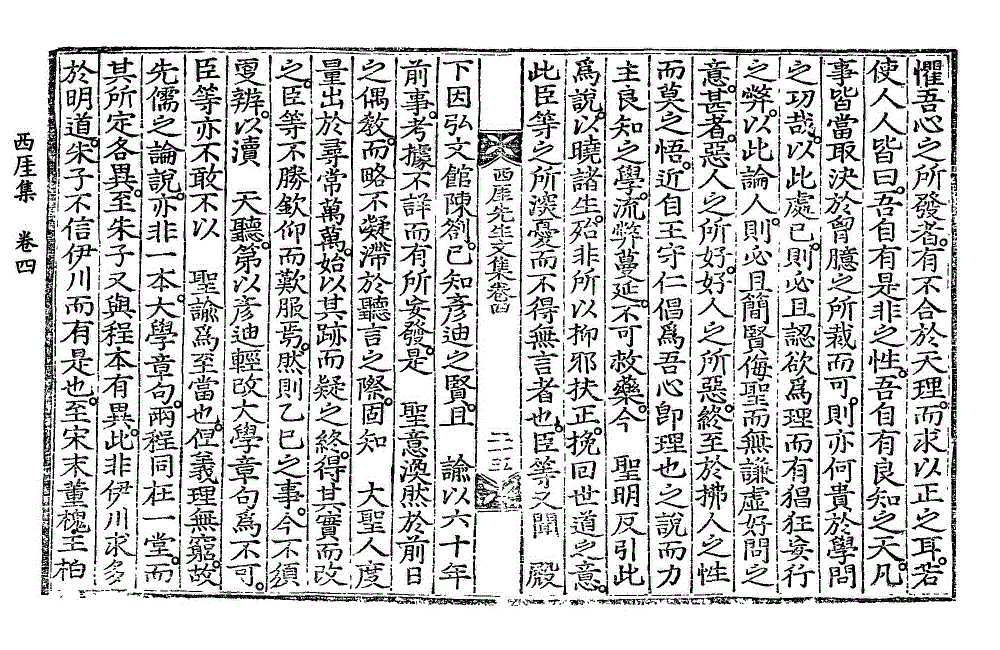 懼吾心之所發者。有不合於天理。而求以正之耳。若
使人人皆曰。吾自有是非之性。吾自有良知之天。凡
事皆當取決於胷臆之所裁而可。則亦何貴於學問
之功哉。以此處己。則必且認欲爲理而有猖狂妄行
之弊。以此論人。則必且簡賢侮聖而無謙虛好問之
意。甚者。惡人之所好。好人之所惡。終至於拂人之性
而莫之悟。近自王守仁倡爲吾心卽理也之說而力
主良知之學。流弊蔓延。不可救藥。今 聖明反引此
爲說。以曉諸生。殆非所以抑邪扶正。挽回世道之意。
此臣等之所深憂而不得無言者也。臣等又聞 殿
西厓先生文集卷四
二十五
下因弘文館陳劄。已知彥迪之賢。且 諭以六十年
前事。考據不詳而有所妄發。是 聖意渙然於前日
之偶敎。而略不凝滯於聽言之際。固知 大聖人度
量出於尋常萬萬。始以其跡而疑之。終得其實而改
之。臣等不勝欽仰而歎服焉。然則乙巳之事。今不須
更辨。以瀆 天聽。第以彥迪輕改大學章句爲不可。
臣等亦不敢不以 聖諭爲至當也。但義理無窮。故
先儒之論說。亦非一本。大學章句。兩程同在一堂。而
其所定各異。至朱子又與程本有異。此非伊川求多
於明道。朱子不信伊川而有是也。至宋末董槐，王柏
西厓集 卷四